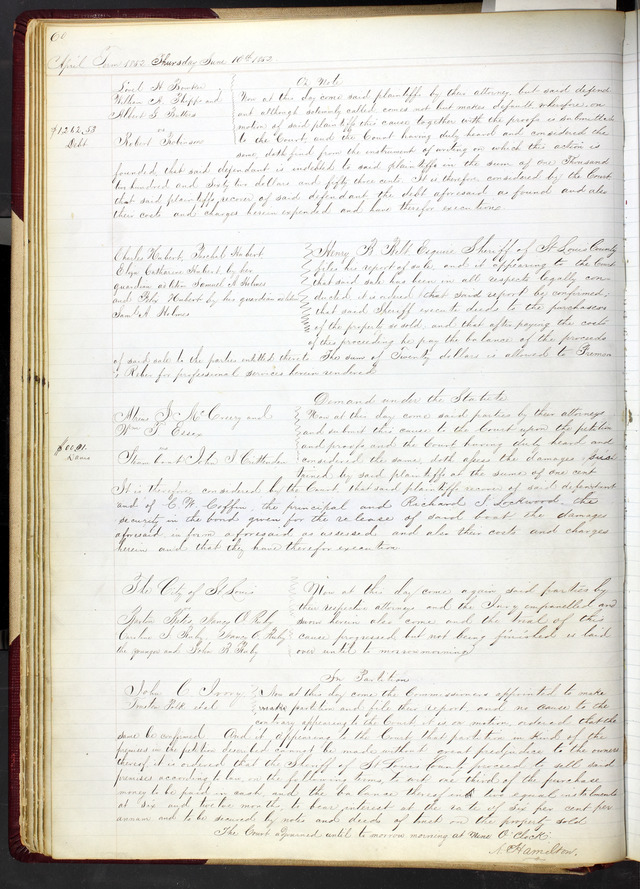 60
April Term 1852 Thursday June 10th 1852
William H. Phipps and
Albert G.
vs
Robert Robinson
$1262.53
Debt
On Note
Now at this day come said plaintiffs by their attorney but said defend
ant although solemnly called comes not but makes default wherefore, on
motion of said plaintiffs this cause together with the proofs is submitted
to the Court, and the Court having duly heard and considered the
same, doth find from the instrument of writing on which this action is
founded that said defendant is indebted to said plaintiffs in the sum of one thousand
two hundred and sixty two dollars and fifty three cents. It is therefore considered by the Court
that said plaintiffs recover of said defendant the debt aforesaid as found and also
their costs and charges herein expended and have therefor execution
Charles Hubert,
Eliza Catharine Hubert by her
guardian ad litem Samuel A Holmes
and Hubert by his guardian ad litem
Saml A Holmes
Henry B Belt Esquire Sheriff of St Louis County
files his report of sale, and it appearing to the Court
that said sale has been in all respects legally con
ducted, it is ordered that said report be confirmed,
that said Sheriff execute deeds to the purchasers
of the property so sold, and that after paying the costs
of this proceeding he pay the balance of the proceeds
of said sale to the parties entitled thereto. The sum of twenty dollars is allowed to
for professional services herein rendered
Demand under the Statute
McCreery and
Wm T. Essex
vs
Steam boat John J Crittenden
$00.01
Dams
Now at this day come said parties by their attorneys
and submit this cause to the Court upon the petition
and proofs and the Court having duly heard and
considered the same, doth assess the damages sus
tained by said plaintiffs at the sum of one cent
It is therefore considered by the Court, that said plaintiffs recover of said defendant
and of E. W. Coffin, the principal and Richard J. Lockwood, the
security in the bond given for the release of said boat the damages
aforesaid in form aforesaid as assessed and also their costs and charges
herein and that they have therefor execution
The City of St Louis
Nancy O. Ruby
Caroline S. Ruby, Nancy C. Ruby
the younger and John R Ruby
Now at this day come again said parties by
their respective attorneys and the Jury empannelled and
sworn herein also come and the trial of this
cause progressed but not being finished is laid
over until to morrow morning
In Partition
John C. Ivory
Trusten Polk et al
Now at this day come the Commissioners appointed to make
make partition and file their report, and no cause to the
contrary appearing to the Court it is on motion ordered that the
same be confirmed. And it appearing to the Court that partition in kind of the
premises in the petition described cannot be made without great predjudice to the owners
thereof it is ordered that the Sheriff of St Louis County proceed to sell said
premises according to law, on the following terms, to wit one third of the purchase
money to be paid in cash and the balance thereof in two equal instalments
at six and twelve months, to bear interest at the rate of six per cent per
annum and to be secured by notes and deeds of trust on the property sold
The Court adjourned until to morrow morning at Nine O'Clock
A. Hamilton.